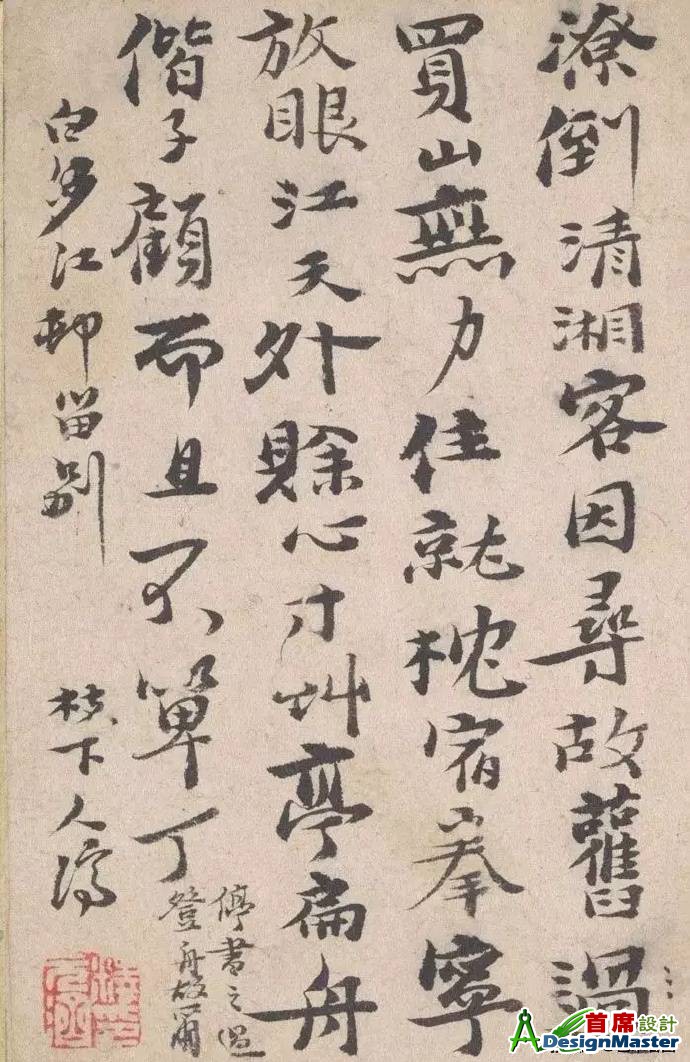 潦倒清湘客因尋故舊過
買山無力住就枕宿拳寧
放眼江天外賖心寸艸亭扁舟
偕子顧而且不單丁
停書之過
登舟故爾
白沙江邨留別 枝下人濟
首席設計
ADesignMaster